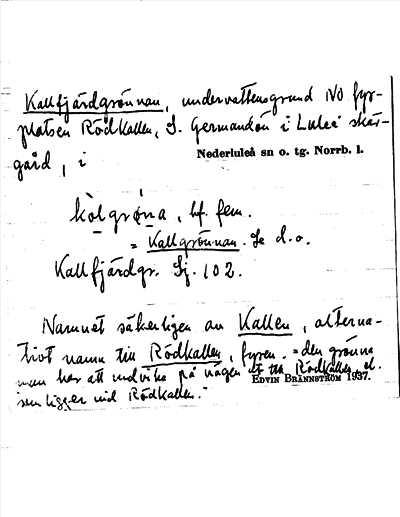 Kallfjärdgrönnan, undervattensgrund NO fyr-
platsen Rödkallen, S. Germandön i Luleå skär-
gård, i
Nederluleå sn o. tg. Norrb. l.
kòlgrøna, bf. fem.
= Kallgrönnan. Se d. o.
Kallfjärdgr. Sj. 102.
Namnet säkerligen av Kallen, alterna-
tivt namn till Rödkallen, fyren. = den grönna
man har att undvika på vägen till Rödkallen, el.
som ligger vid Rödkallen."
EDVIN BRÄNNSTRÖM 1937.